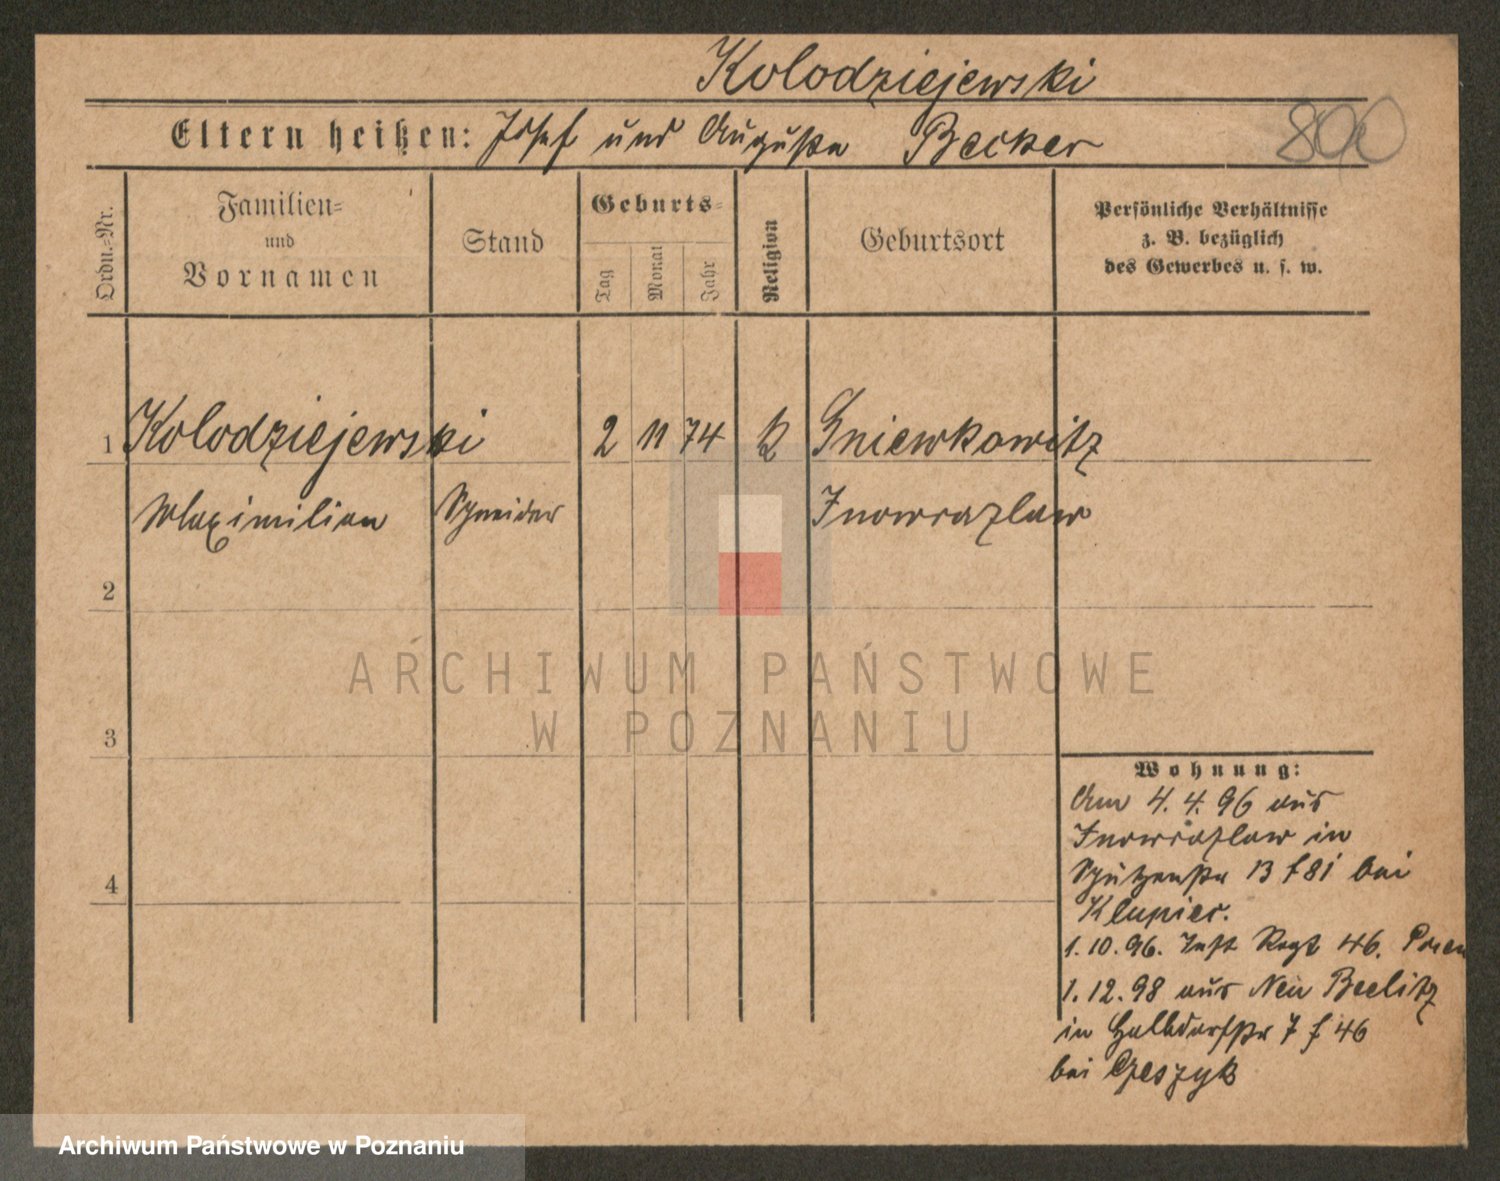 Kolodziejewski
Eltern heißen: Josef und Augusta Becker
800
Ordn.-Nr.
Familien-
und
Vornamen
Stand
Geburts-
Tag
Monat
Jahr
Religion
Geburtsort
Persönliche Verhältnisse
z. B. bezüglich
des Gewerbes u. s. w.
1 Kolodziejewski 2 11 74 k Gniewkowitz
Maximilian Schneider Inowrazlaw
2
3
4
ARCHIWUM PAŃSTWOWE
W POZNANIU
Wohnung:
Am 4. 4. 96 aus
Inowrazlaw in
Schützenstr 13 f 81 bei
1. 10. 96. Inft Regt 46. Posen
1. 12. 98 aus Neu Beelitz
in Halbdorfstr 7 f 46
bei Czeszyk
Archiwum Państwowe w Poznaniu